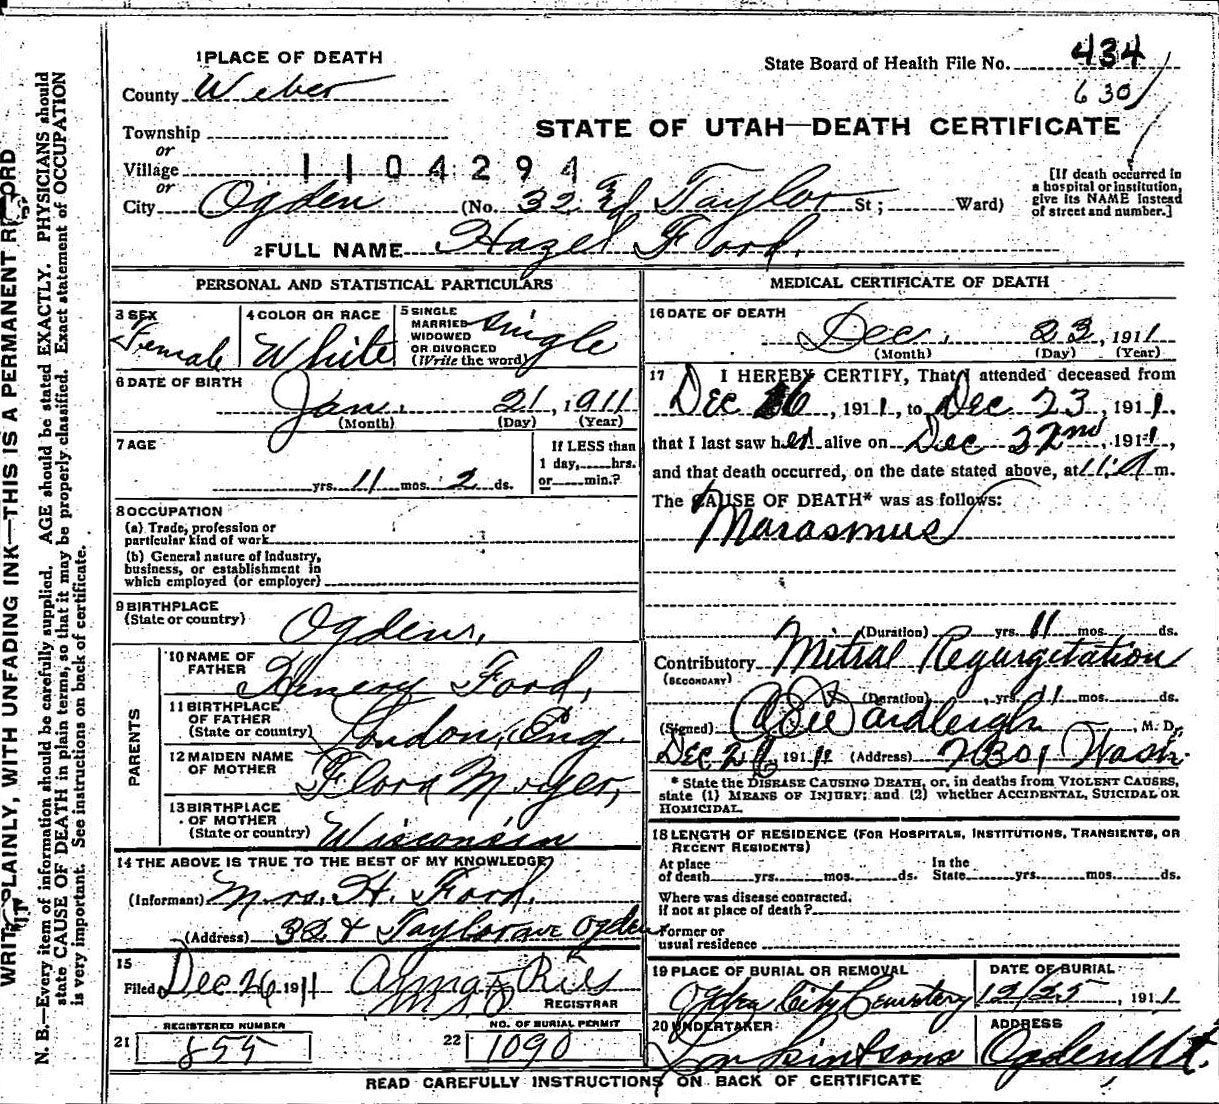 1 PLACE OF DEATH
State Board of Health File No. 434
County Weber
6301
Township
STATE OF UTAH—DEATH CERTIFICATE
or
Village 1104294
or
City Ogden (No. 32nd Taylor St; Ward)
[If death occurred in
a hospital or institution,
give its NAME instead
of street and number.]
2 FULL NAME Hazel Ford.
PERSONAL AND STATISTICAL PARTICULARS
3 SEX Female
4 COLOR OR RACE White
5 SINGLE
MARRIED
WIDOWED
OR DIVORCED
(Write the word) single
6 DATE OF BIRTH
Jan. 21, 1911
(Month) (Day) (Year)
7 AGE
yrs. 11 mos. 2 ds.
If LESS than
1 day, hrs.
or min.?
8 OCCUPATION
(a) Trade, profession or
particular kind of work
(b) General nature of Industry,
business, or establishment in
which employed (or employer)
9 BIRTHPLACE
(State or country) Ogden,
PARENTS
10 NAME OF
FATHER Henery Ford,
11 BIRTHPLACE
OF FATHER
(State or country) London, Eng.
12 MAIDEN NAME
OF MOTHER Flora Moyer,
13 BIRTHPLACE
OF MOTHER
(State or country) Wisconsin
14 THE ABOVE IS TRUE TO THE BEST OF MY KNOWLEDGE
(Informant) Mrs. H. Ford.
(Address) 32 & Taylor ave Ogden
15
Filed Dec 26 1911
REGISTRAR
REGISTERED NUMBER
21 855
NO. OF BURIAL PERMIT
22 1090
MEDICAL CERTIFICATE OF DEATH
16 DATE OF DEATH
Dec. 23, 1911
(Month) (Day) (Year)
17 I HEREBY CERTIFY, That I attended deceased from
Dec 16, 1911, to Dec 23, 1911.
that I last saw her alive on Dec 22nd, 1911,
and that death occurred, on the date stated above, at 11:A m.
The CAUSE OF DEATH* was as follows:
Marasmus
(Duration) yrs. 11 mos. ds.
Contributory Mitral Regurgitation
(SECONDARY)
(Duration) yrs. 11 mos. ds.
(Signed) M. D.
Dec 26 1911 (Address) Wash.
* State the DISEASE CAUSING DEATH, or, in deaths from VIOLENT CAUSES,
state (1) MEANS OF INJURY; and (2) whether ACCIDENTAL, SUICIDAL OR
HOMICIDAL.
18 LENGTH OF RESIDENCE (FOR HOSPITALS, INSTITUTIONS, TRANSIENTS, OR
RECENT RESIDENTS)
At place
of death yrs. mos. ds.
In the
State yrs. mos. ds.
Where was disease contracted,
if not at place of death?
Former or
usual residence
19 PLACE OF BURIAL OR REMOVAL
Ogden City Cemetery
DATE OF BURIAL
12/25, 1911
20 UNDERTAKER
ADDRESS
Ogden Ut.
READ CAREFULLY INSTRUCTIONS ON BACK OF CERTIFICATE
WRITE PLAINLY, WITH UNFADING INK—THIS IS A PERMANENT RECORD
N. B.—Every item of information should be carefully supplied. AGE should be stated EXACTLY. PHYSICIANS should
state CAUSE OF DEATH in plain terms, so that it may be properly classified. Exact statement of OCCUPATION
is very important. See instructions on back of certificate.